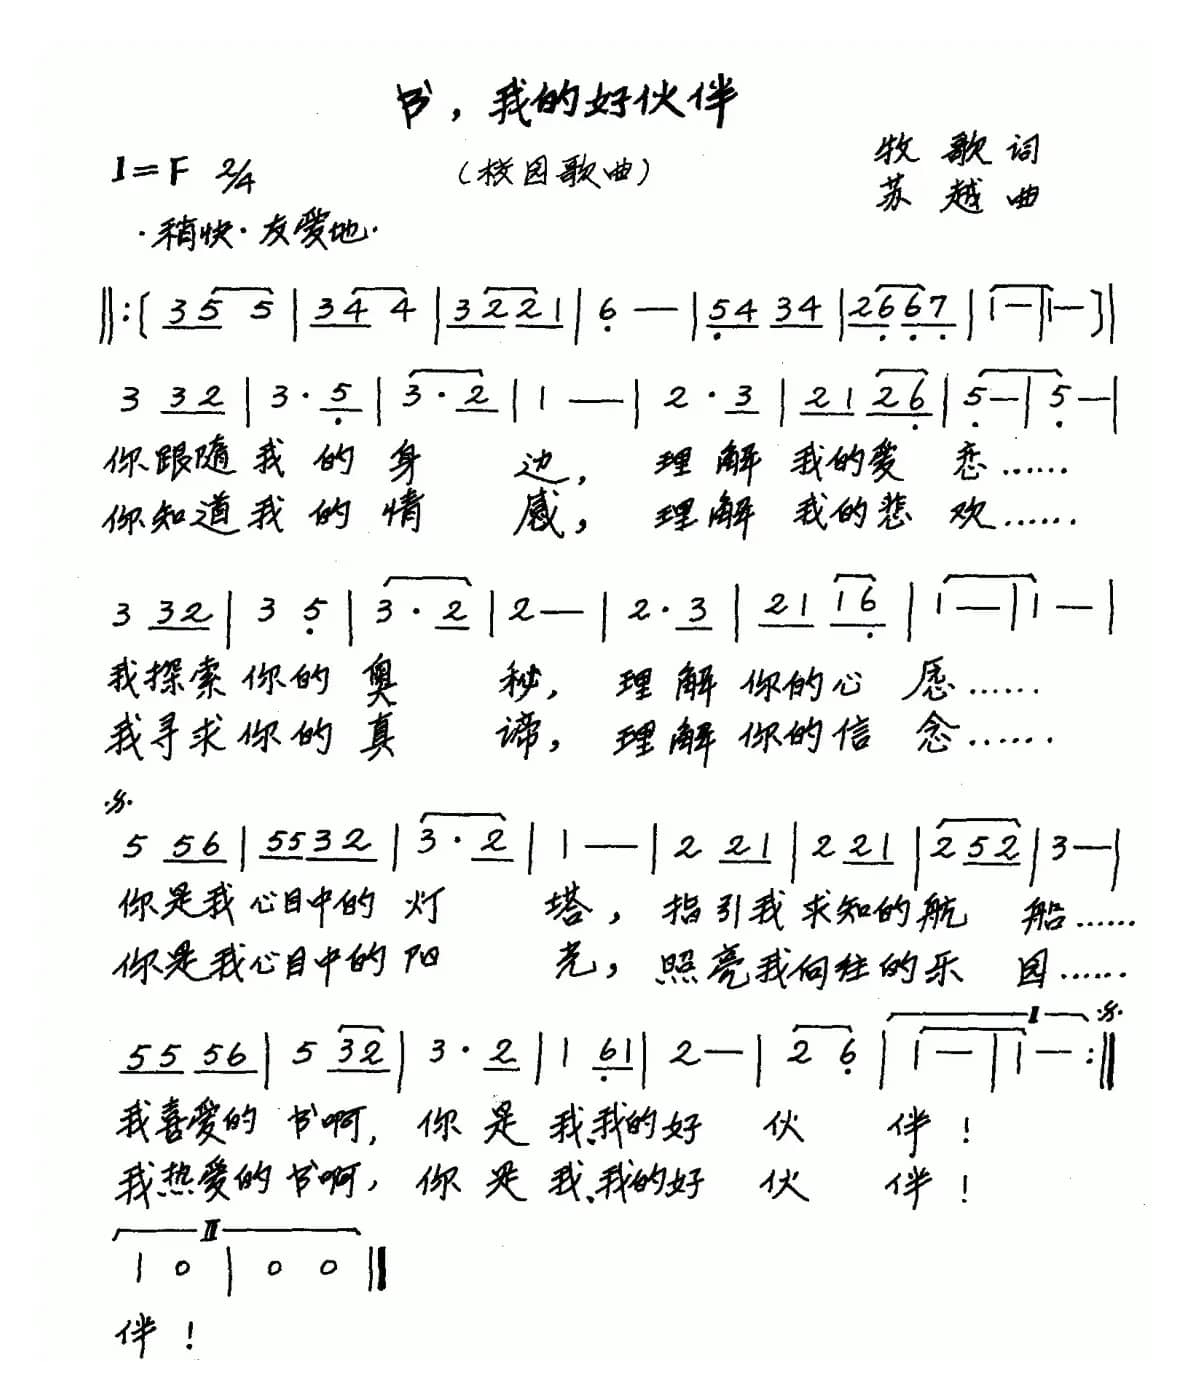 书，我的好伙伴
1=F 2/4
（校园歌曲）
牧歌词
苏越曲
·稍快·友爱地·
‖:[ 3 5 5 | 3 4 4 | 3 2 2 1 | 6 — | 5 4 3 4 | 2 6 6 7 | 1 — | 1 — ] |
3 3 2 | 3 · 5 | 3 · 2 | 1 — | 2 · 3 | 2 1 2 6 | 5 — | 5 — |
你跟随我的身边，理解我的爱恋……
你知道我的情感，理解我的悲欢……
3 3 2 | 3 5 | 3 · 2 | 2 — | 2 · 3 | 2 1 1 6 | 1 — | 1 — |
我探索你的奥秘，理解你的心愿……
我寻求你的真谛，理解你的信念……
·𝄋·
5 5 6 | 5 5 3 2 | 3 · 2 | 1 — | 2 2 1 | 2 2 1 | 2 5 2 | 3 — |
你是我心目中的灯塔，指引我求知的航船……
你是我心目中的阳光，照亮我向往的乐园……
I ·𝄋·
5 5 5 6 | 5 3 2 | 3 · 2 | 1 6 1 | 2 — | 2 6 | 1 — | 1 — :‖
我喜爱的书啊，你是我、我的好伙伴！
我热爱的书啊，你是我、我的好伙伴！
II
1 0 | 0 0 ‖
伴！